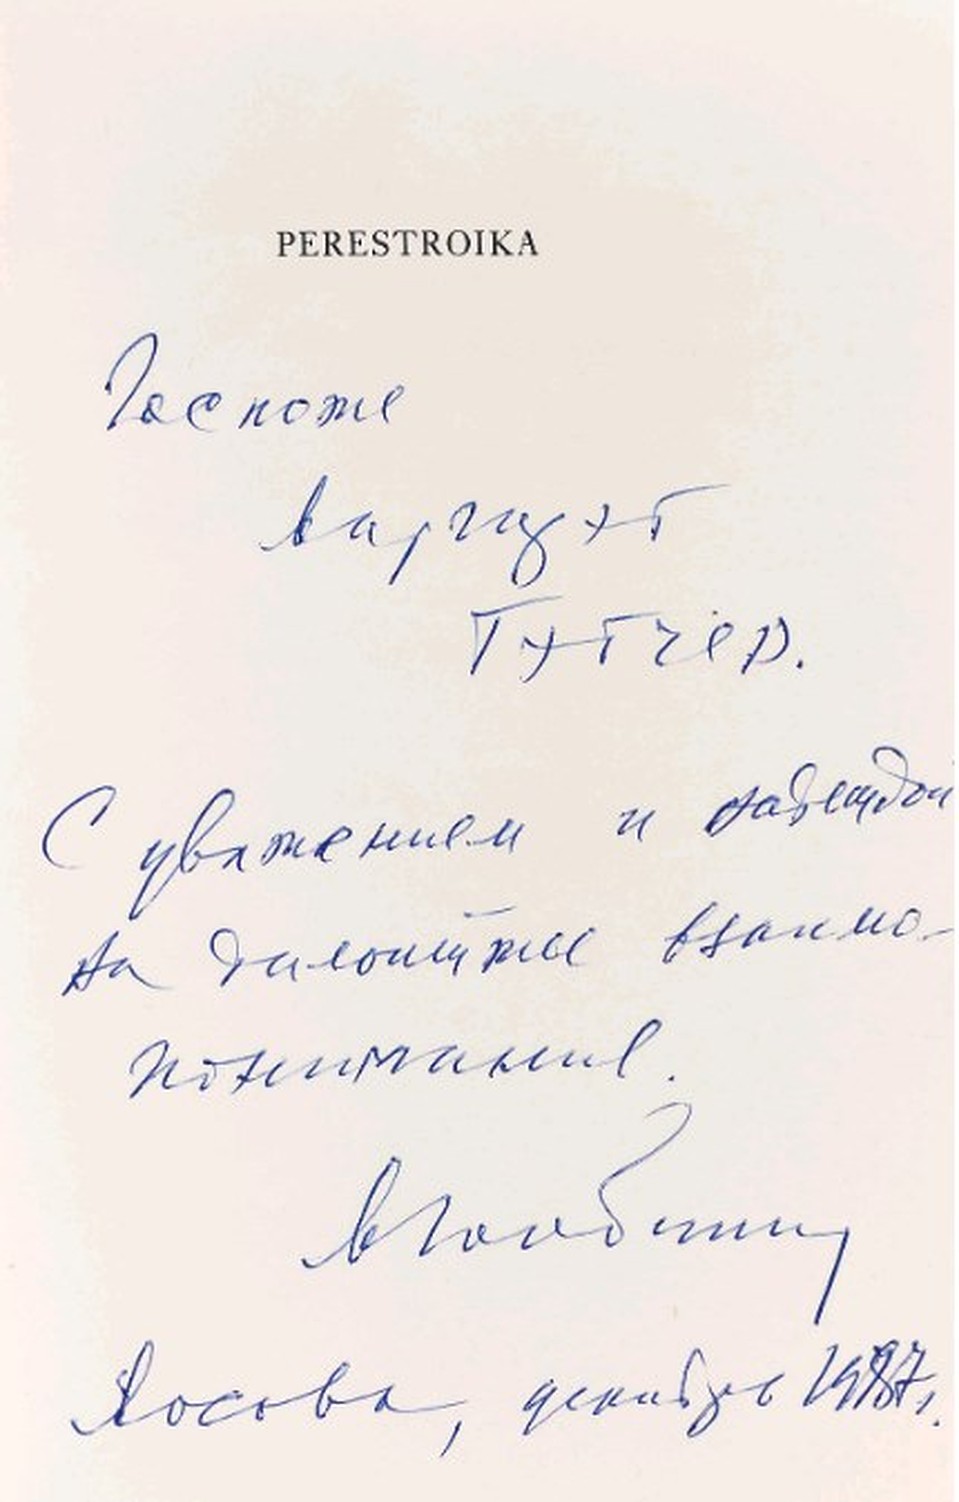 PERESTROIKA
Госпоже
Маргарэт
Тэтчер.
С уважением и надеждой
на дальнейшее взаимо-
понимание.
М Горбачев
Москва, декабрь 1987 г.